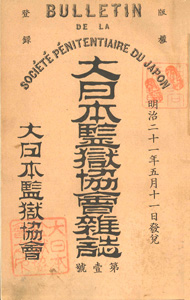 BULLETIN
DE LA
SOCIÉTÉ PÉNITENTIAIRE DU JAPON
版權
登録
明治二十一年五月十一日發兌
大日本監獄協會雜誌
第壹號
大日本監獄協會